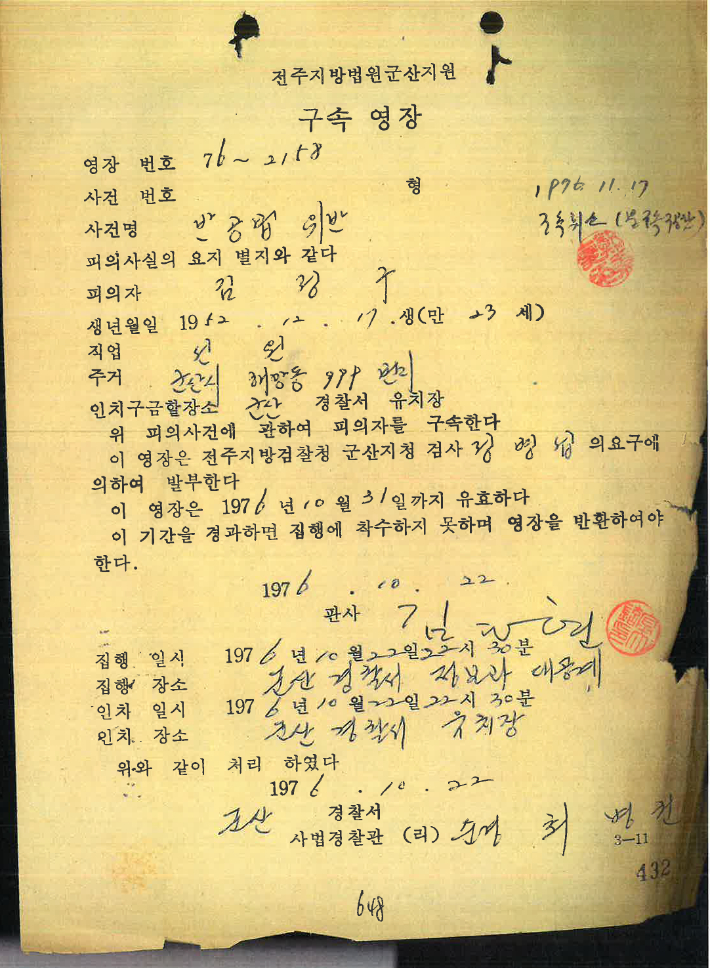 전주지방법원군산지원
구속 영장
영장 번호 76~2158
사건 번호 형
1976. 11. 17
구속취소
사건명 반공법 위반
피의사실의 요지 별지와 같다
피의자 김 정 구
생년월일 1952 . 12 . 17 .생(만 23 세)
직업 선 원
주거 군산시 해망동 999 번지
인치구금할장소 군산 경찰서 유치장
위 피의사건에 관하여 피의자를 구속한다
이 영장은 전주지방검찰청 군산지청 검사 정 병 의요구에
의하여 발부한다
이 영장은 1976 년 10 월 31일까지 유효하다
이 기간을 경과하면 집행에 착수하지 못하며 영장을 반환하여야
한다.
1976 . 10 . 22 .
판사 김
집행 일시 1976 년 10 월 22일 22시 30분
집행 장소 군산 경찰서 정보과 대공계
인차 일시 1976 년 10 월 22일 22시 30분
인치 장소 군산 경찰서 유치장
위와 같이 처리 하였다
1976 . 10 . 22
군산 경찰서
사법경찰관 (리) 순경 최 병 천
3-11
432
648